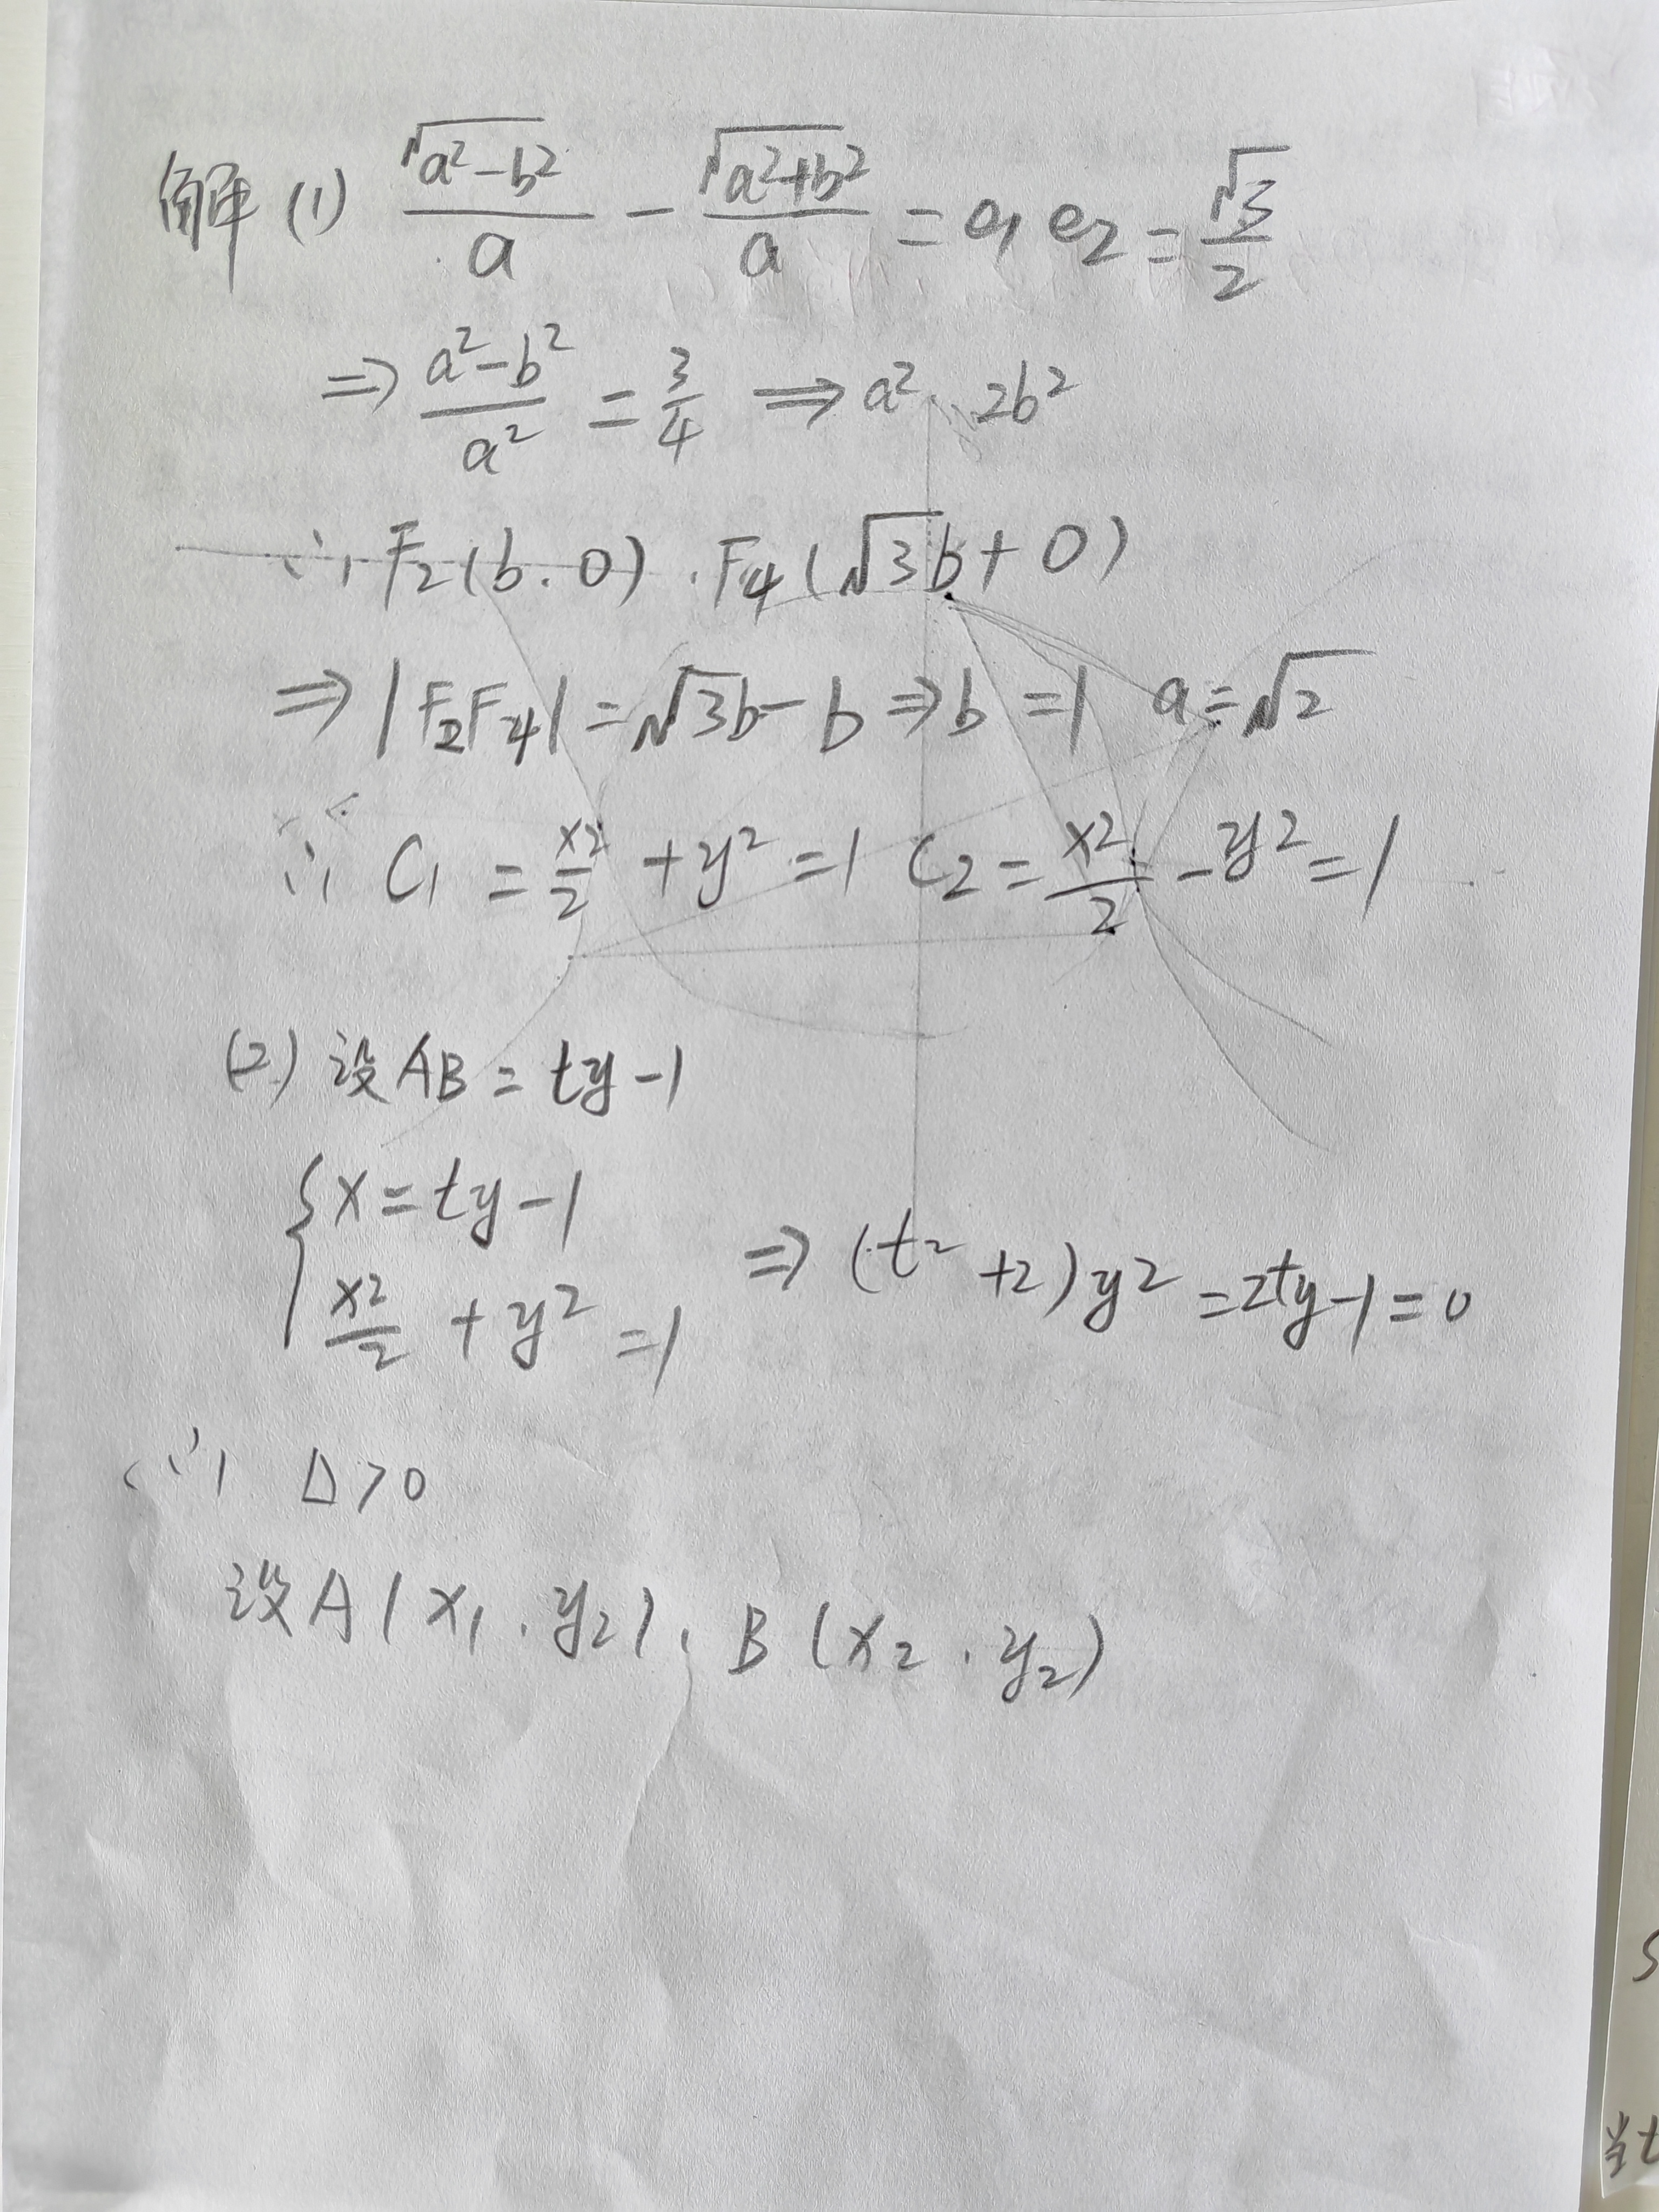 解 (1) √(a²-b²)/a - √(a²+b²)/a = e₁e₂ = √3/2
⇒ (a²-b²)/a² = 3/4 ⇒ a² 2b²
∴ F₂(b.0) . F₄(√3b+0)
⇒ |F₂F₄| = √3b-b ⇒ b=1 a=√2
∴ C₁ = x²/2 + y² = 1 C₂ = x²/2 - y² = 1
(2) 设 AB = ty-1
{x = ty-1
x²/2 + y² = 1 ⇒ (t²+2)y² = 2ty-1 = 0
∴ Δ>0
设 A(x₁.y₂), B(x₂.y₂)
当t